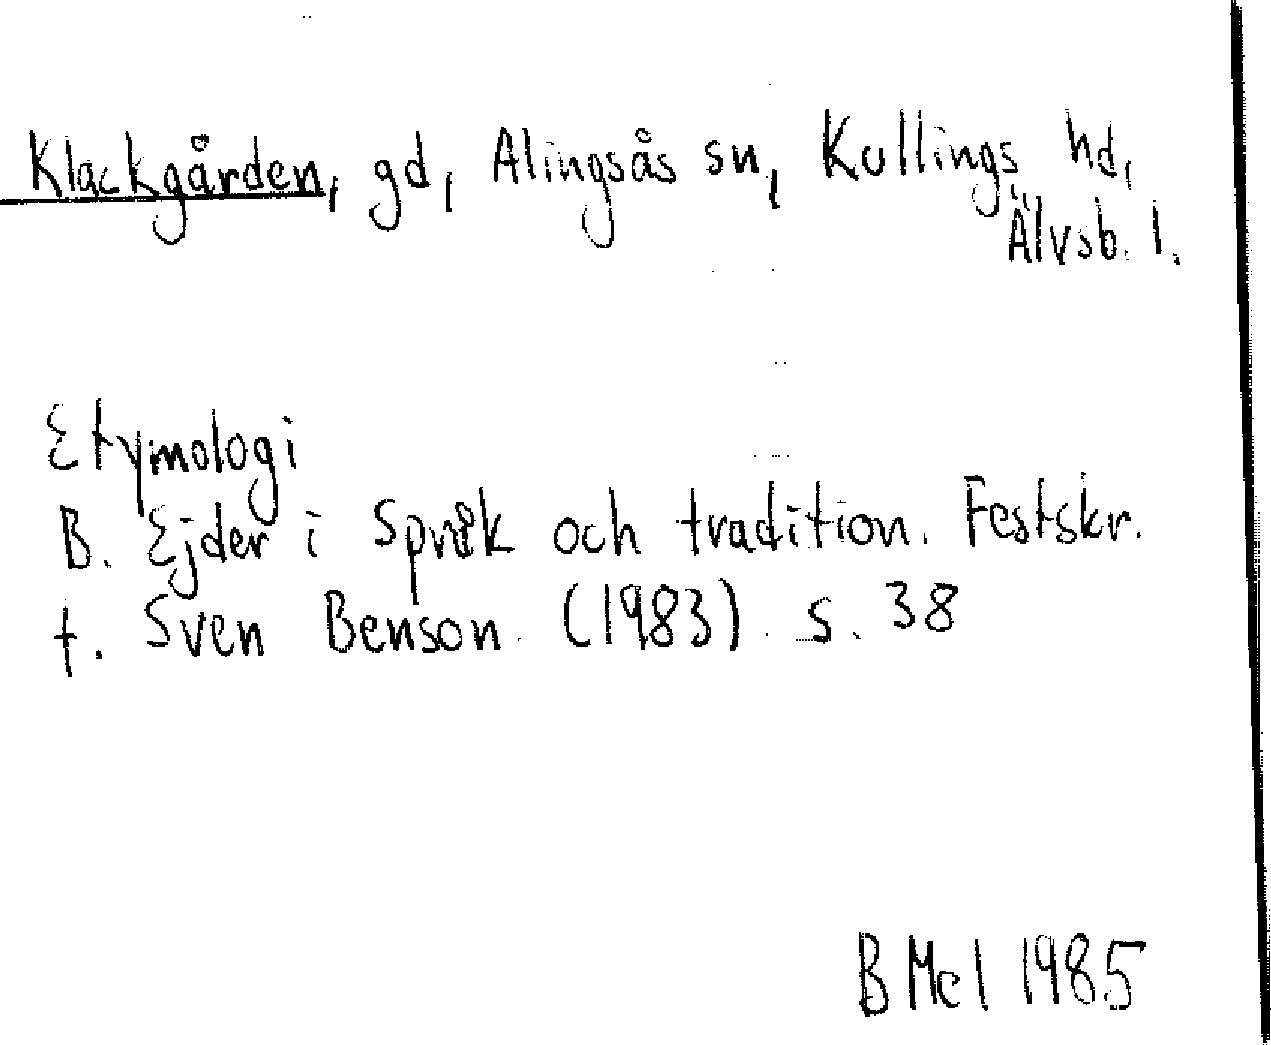 Klackgården, gd, Alingsås sn, Kullings hd,
Älvsb. l.
Etymologi
B. Ejder i Språk och tradition. Festskr.
t. Sven Benson. (1983). s. 38
B Mel 1985